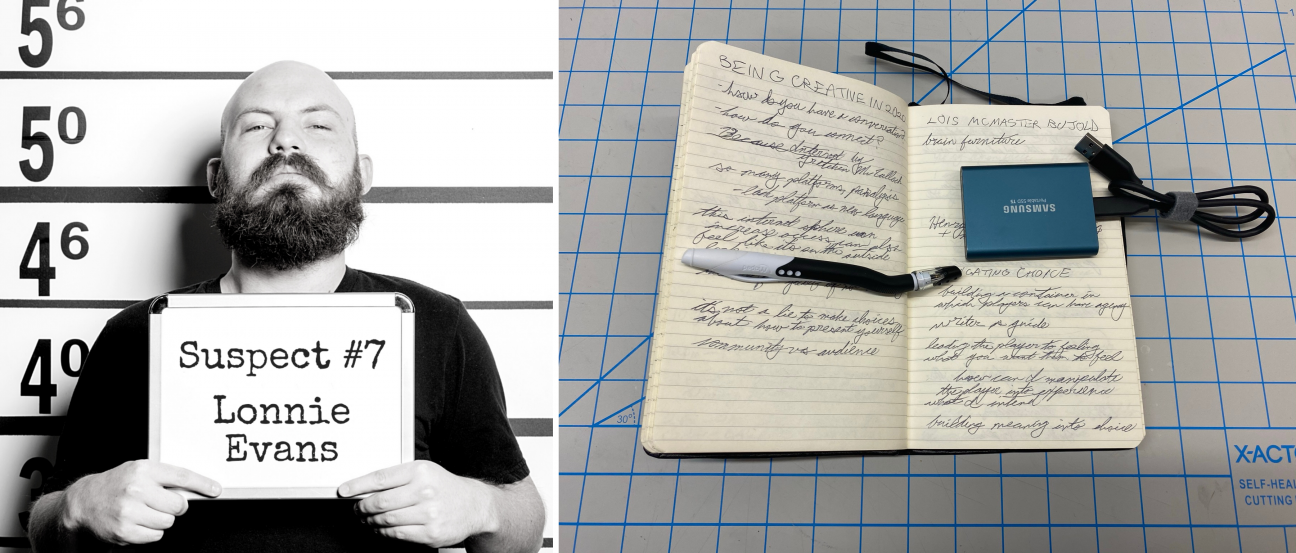 5⁶
5⁰
4⁶
4⁰
3
Suspect #7
Lonnie
Evans
BEING CREATIVE IN 202
-how do you have a conversation
-how do you connect?
Because Internet by
Gretchen McCulloch
so many platforms, paradigms
-each platform is new language
this internet sphere can
increase access can also
feel like it's on the outside
it's not a lie to make choices
about how to present yourself
community vs audience
LOIS MCMASTER BUJOLD
brain furniture
SAMSUNG
Portable SSD T5
Henry
+
GATING CHOICE
building a container in
which players can have agency
writer as guide
leading the player to feeling
what you want them to feel
how can I manipulate
the player into experience
what I intend
building meaning into choice
30°
X-ACT
SELF-HEAL
CUTTING